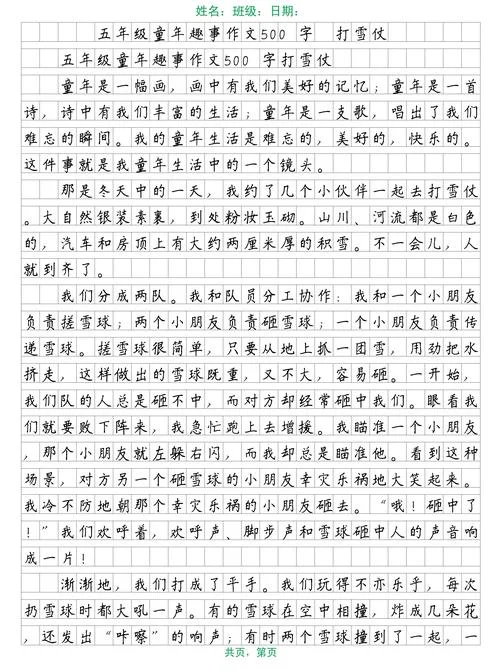 姓名：班级：日期：
五年级童年趣事作文500 字 打雪仗
五年级童年趣事作文500 字打雪仗
童年是一幅画，画中有我们美好的记忆；童年是一首
诗，诗中有我们丰富的生活；童年是一支歌，唱出了我们
难忘的瞬间。我的童年生活是难忘的，美好的，快乐的。
这件事就是我童年生活中的一个镜头。
那是冬天中的一天，我约了几个小伙伴一起去打雪仗
。大自然银装素裹，到处粉妆玉砌。山川、河流都是白色
的，汽车和房顶上有大约两厘米厚的积雪。不一会儿，人
就到齐了。
我们分成两队。我和队员分工协作：我和一个小朋友
负责搓雪球；两个小朋友负责砸雪球；一个小朋友负责传
递雪球。搓雪球很简单，只要从地上抓一团雪，用劲把水
挤走，这样做出的雪球既重，又不大，容易砸。一开始，
我们队的人总是砸不中，而对方却经常砸中我们。眼看我
们就要败下阵来，我急忙跑上去增援。我瞄准一个小朋友
，那个小朋友就左躲右闪，而我却总是瞄准他。看到这种
场景，对方另一个砸雪球的小朋友幸灾乐祸地大笑起来。
我冷不防地朝那个幸灾乐祸的小朋友砸去。“哦！砸中了
！”我们欢呼着，欢呼声、脚步声和雪球砸中人的声音响
成一片！
渐渐地，我们打成了平手。我们玩得不亦乐乎，每次
扔雪球时都大吼一声。有的雪球在空中相撞，炸成几朵花
，还发出“咔嚓”的响声；有时两个雪球撞到了一起，一
共页，第页